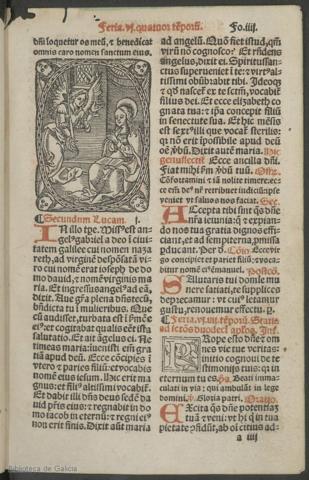 Feria.vj.quatuor tẽporũ. Fo.iiij.
dñi loquetur os meũ, ⁊ benedicat
omnis caro nomen sanctum eius.
¶ Secundum Lucam. j.
IN illo tpe. Missꝰ est an-
gelꝰ gabriel a deo ĩ ciui-
tatem galilee cui nomen naza
reth, ad virginẽ despõsatã vi-
ro cui nomẽ erat ioseph de do
mo dauid, ⁊ nomẽ virginis ma
ria. Et ingressus angelꝰ ad eã,
dixit. Aue gr̃a plena dñs tecũ,
bñdicta tu ĩ mulieribus. Que
cũ audisset, turbata est ĩ ẜmõe
eiꝰ: et cogitabat qualis eẽt ista
salutatio. Et ait ãgelus ei. Ne
timeas maria: iuenisti em̃ gra
tiã apud deũ. Ecce cõcipies ĩ
vtero ⁊ paries filiũ: et vocabis
nomẽ eius iesum. Hic erit ma
gnus: et filiꝰ altissimi vocabit̃.
Et dabit illi dñs deus sedẽ da
uid pr̃is eius: et regnabit in do
mo iacob in eternũ: ⁊ regni eiꝰ
non erit finis. Dixit aũt maria
ad angelũ. Quõ fiet istud, qm̃
virũ nõ cognosco? Et r̃ndens
angelus, dixit ei. Spiritussan-
ctus superueniet ĩ te: ⁊ virtꝰ al-
tissimi obũbrabit tibi. Ideoq̃
⁊ qđ nascet̃ ex te sctm̃, vocabit̃
filius dei. Et ecce elizabeth co
gnata tua: ⁊ ip̃a concepit filiũ
in senectute sua. Et hic mẽsis
est sextꝰ illi que vocat̃ sterilis:
q̃ nõ erit ĩpossibile apud deũ
oẽ v̓bũ. Dixit autẽ maria. Hic
genuflectit̃. Ecce ancilla dñi.
Fiat mihi ẜm v̓bũ tuũ. Offẽ.
Cõfortamini ⁊ iã nolite timere: ec-
ce em̃ deꝰ nr̃ retribuet iudiciũ: ipse
veniet ⁊ saluos nos faciat. Sec.
ACcepta tibi sint q̃s dñe
nr̃a ieiunia: q̃ ⁊ expian-
do nos tua gratia dignos effi-
ciant, et ad sempiterna, ꝓmissa
ꝑducant. Per d. Cõio. Ecce vir-
go concipiet et pariet filiũ: ⁊ voca-
bitur nomẽ eiꝰ emanuel. Postcõ.
SAlutaris tui domie mu
nere satiati, te supplices
deprecamur: vt cuiꝰ letamur
gustu, renouemur effectu. p
¶ Feria.vj.iiij.tẽporũ. Statio
ad sctõs duodecĩ apłos. Int̃.
PRope esto dñe ⁊ om
nes vie tue veritas:
initio cognoui de te-
stimonijs tuis: q̃ in
eternum tu es. p̃s. Beati imma-
culati in via: qui ambulãt in lege
domini. v̓. Gloria patri. Oratio.
EXcita q̃s dñe potentiã
tuã ⁊ veni: vt hi q̃ in tua
pietate ꝯfidũt, ab oĩ citius ad-
a iiij
Biblioteca de Galicia